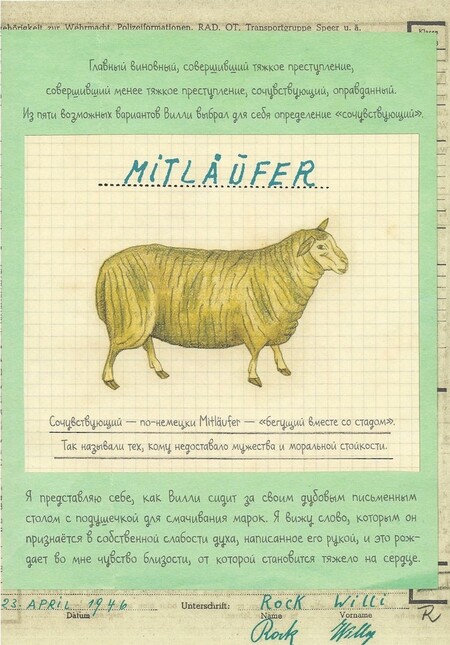 gehörigkeit zur Wehrmacht, Polizeiformationen, RAD, OT, Transportgruppe Speer u. ä.
Klasse
Главный виновный, совершивший тяжкое преступление,
совершивший менее тяжкое преступление, сочувствующий, оправданный.
Из пяти возможных вариантов Вилли выбрал для себя определение «сочувствующий».
MiTLÄUFER
Сочувствующий — по-немецки Mitläufer — «бегущий вместе со стадом».
Так называли тех, кому недоставало мужества и моральной стойкости.
Я представляю себе, как Вилли сидит за своим дубовым письменным
столом с подушечкой для смачивания марок. Я вижу слово, которым он
признаётся в собственной слабости духа, написанное его рукой, и это рож-
дает во мне чувство близости, от которой становится тяжело на сердце.
23. APRIL 1946 Unterschrift: ROCK WILLI
Datum Name Vorname
Rock Willy
R